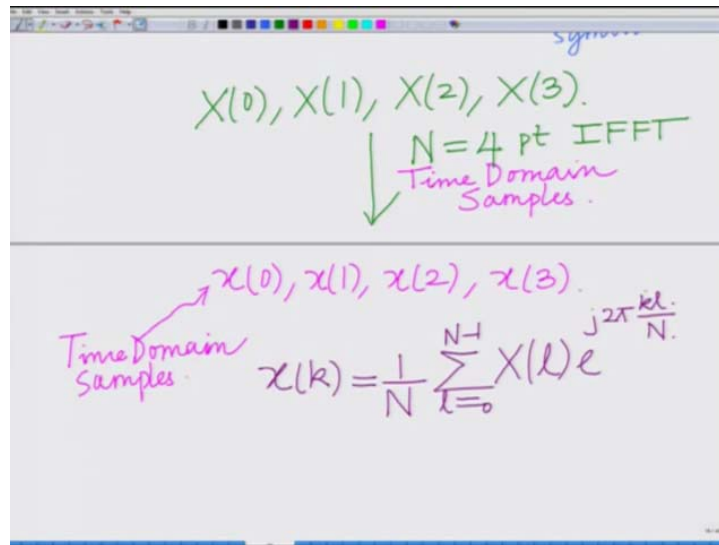 X(0), X(1), X(2), X(3).
N = 4 pt IFFT
Time Domain
Samples.
x(0), x(1), x(2), x(3).
Time Domain
Samples.
x(k) = 1/N \sum_{l=0}^{N-1} X(l) e^{j2π kl/N}.